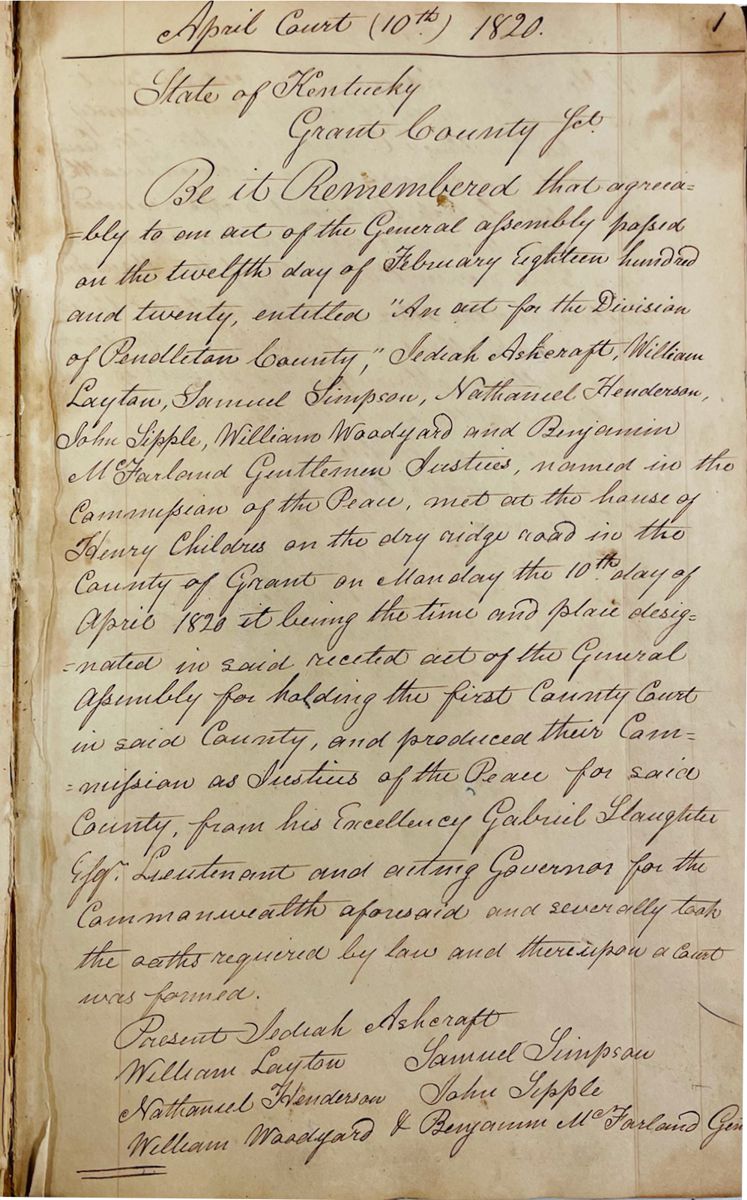 April Court (10th.) 1820.
1
State of Kentucky
Grant County Sct.
Be it Remembered that agreea=
=bly to an act of the General assembly passed
on the twelfth day of February Eighteen hundred
and twenty, entitled "An act for the Division
of Pendleton County," Jediah Ashcraft, William
Layton, Samuel Simpson, Nathaniel Henderson,
John Sipple, William Woodyard and Benjamin
McFarland Gentlemen Justices, named in the
Commission of the Peace, met at the house of
Henry Childres on the dry ridge road in the
County of Grant on Monday the 10th. day of
April 1820 it being the time and place desig=
=nated in said receted act of the General
Assembly for holding the first County Court
in said County, and produced their Com=
=mission as Justices of the Peace for said
County, from his Excellency Gabriel Slaughter
Esqr. Lieutenant and acting Governor for the
Commonwealth aforesaid and severally took
the oaths required by law and thereupon a Court
was formed.
Present Jediah Ashcraft
William Layton Samuel Simpson
Nathaniel Henderson John Sipple
William Woodyard & Benjamin McFarland Gen